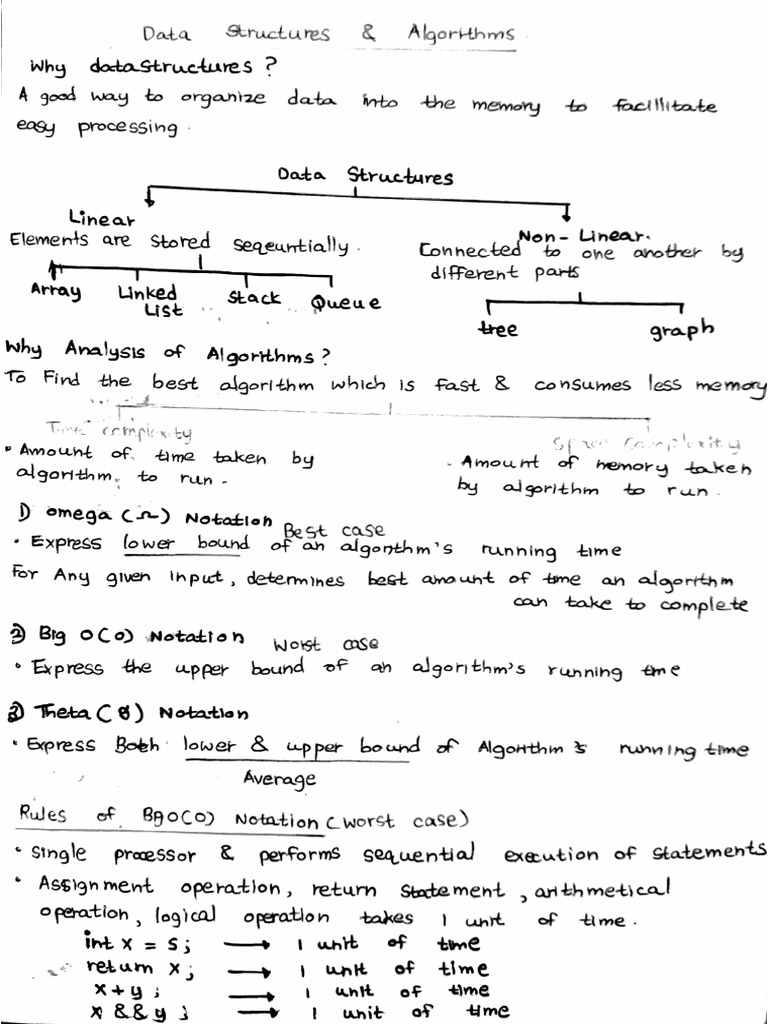 Data Structures & Algorithms
Why dataStructures ?
A good way to organize data into the memory to facillitate
easy processing.
Data Structures
Linear
Elements are stored seqeuntially.
Non-Linear.
Connected to one another by
different parts
Array Linked List Stack Queue
tree graph
Why Analysis of Algorithms?
To Find the best algorithm which is fast & consumes less memory
Time complexity
Space Complexity
• Amount of time taken by
algorithm to run.
. Amount of memory taken
by algorithm to run.
1) omega (Ω) Notation Best case
• Express lower bound of an algorithm's running time
For Any given input, determines best amount of time an algorithm
can take to complete
2) Big O(O) Notation Worst case
• Express the upper bound of an algorithm's running time
3) Theta (θ) Notation
• Express Both lower & upper bound of Algorithm's running time
Average
Rules of BgO(O) Notation (worst case)
• Single processor & performs sequential execution of statements
• Assignment operation, return statement, arithmetical
operation, logical operation takes 1 unit of time.
int x = 5; → 1 unit of time
return x; → 1 unit of time
x+y; → 1 unit of time
x && y; → 1 unit of time